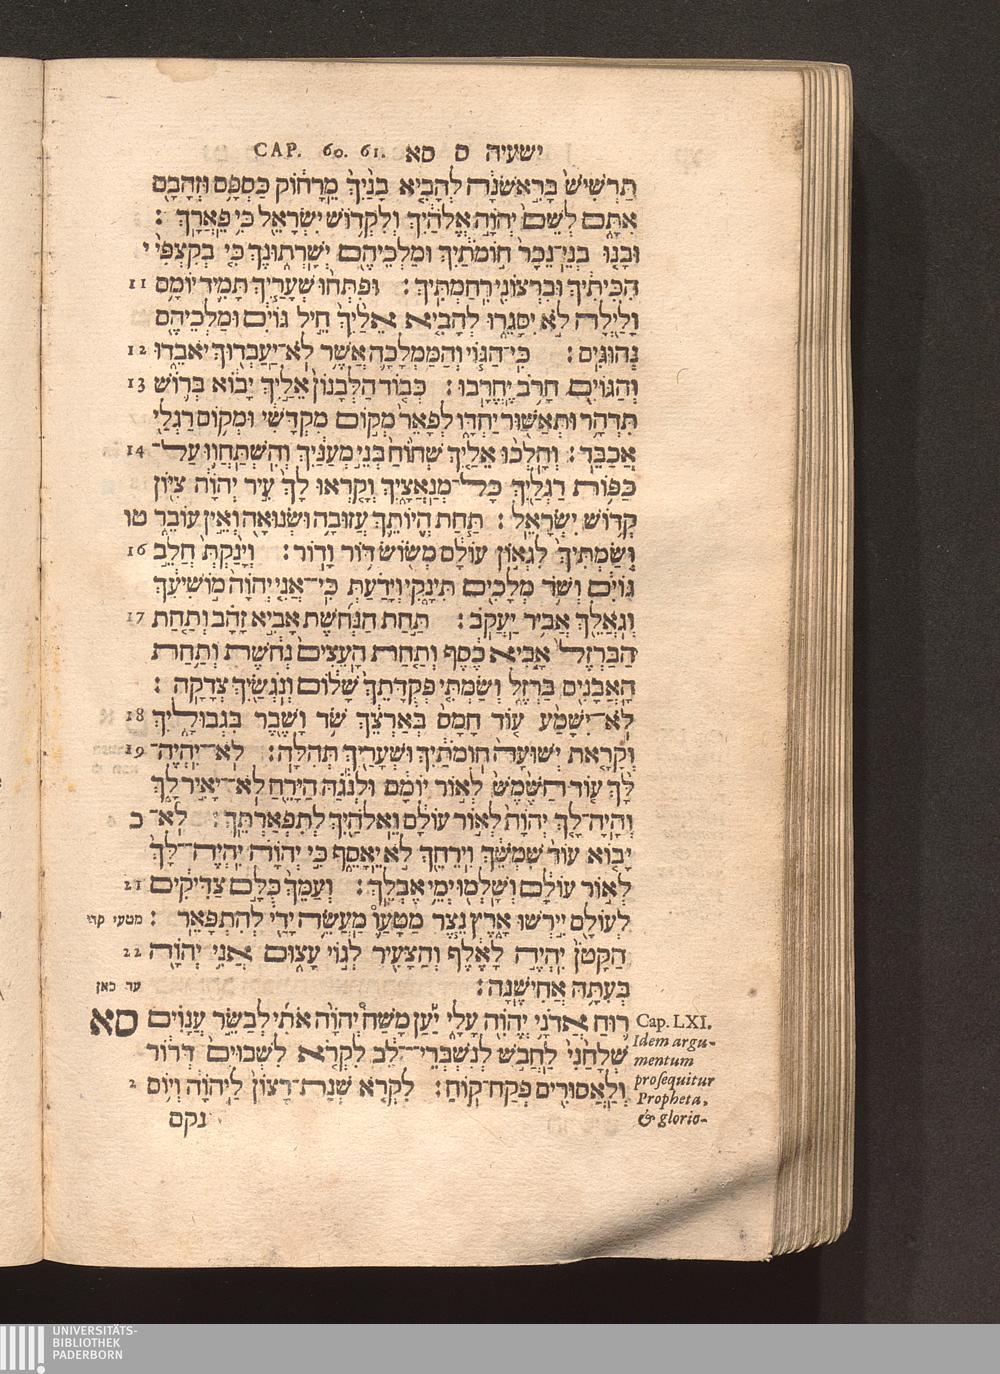 ישעיה ס סא CAP. 60. 61.
תַּרְשִׁישׁ בָּרִאשֹׁנָה לְהָבִיא בָנַיִךְ מֵרָחוֹק כַּסְפָּם וּזְהָבָם
אִתָּם לְשֵׁם יְהוָֹה אֱלֹהַיִךְ וְלִקְדוֹשׁ יִשְׂרָאֵל כִּי פֵאֲרָךְ׃
וּבָנוּ בְנֵי־נֵכָר חוֹמֹתַיִךְ וּמַלְכֵיהֶם יְשָׁרְתוּנֶךְ כִּי בְקִצְפִּי י
הִכִּיתִיךְ וּבִרְצוֹנִי רִחַמְתִּיךְ׃ וּפִתְּחוּ שְׁעָרַיִךְ תָּמִיד יוֹמָם 11
וָלַיְלָה לֹא יִסָּגֵרוּ לְהָבִיא אֵלַיִךְ חֵיל גּוֹיִם וּמַלְכֵיהֶם
נְהוּגִים׃ כִּי־הַגּוֹי וְהַמַּמְלָכָה אֲשֶׁר לֹא־יַעַבְדוּךְ יֹאבֵדוּ 12
וְהַגּוֹיִם חָרֹב יֶחֱרָבוּ׃ כְּבוֹד הַלְּבָנוֹן אֵלַיִךְ יָבוֹא בְּרוֹשׁ 13
תִּדְהָר וּתְאַשּׁוּר יַחְדָּו לְפָאֵר מְקוֹם מִקְדָּשִׁי וּמְקוֹם רַגְלַי
אֲכַבֵּד׃ וְהָלְכוּ אֵלַיִךְ שְׁחוֹחַ בְּנֵי מְעַנַּיִךְ וְהִשְׁתַּחֲווּ עַל־ 14
כַּפּוֹת רַגְלַיִךְ כָּל־מְנַאֲצָיִךְ וְקָרְאוּ לָךְ עִיר יְהוָֹה צִיּוֹן
קְדוֹשׁ יִשְׂרָאֵל׃ תַּחַת הֱיוֹתֵךְ עֲזוּבָה וּשְׂנוּאָה וְאֵין עוֹבֵר טו
וְשַׂמְתִּיךְ לִגְאוֹן עוֹלָם מְשׂוֹשׂ דּוֹר וָדוֹר׃ וְיָנַקְתְּ חֲלֵב 16
גּוֹיִם וְשֹׁד מְלָכִים תִּינָקִי וְיָדַעַתְּ כִּי־אֲנִי יְהוָֹה מוֹשִׁיעֵךְ
וְגֹאֲלֵךְ אֲבִיר יַעֲקֹב׃ תַּחַת הַנְּחֹשֶׁת אָבִיא זָהָב וְתַחַת 17
הַבַּרְזֶל אָבִיא כֶסֶף וְתַחַת הָעֵצִים נְחֹשֶׁת וְתַחַת
הָאֲבָנִים בַּרְזֶל וְשַׂמְתִּי פְקֻדָּתֵךְ שָׁלוֹם וְנֹגְשַׂיִךְ צְדָקָה׃
לֹא־יִשָּׁמַע עוֹד חָמָס בְּאַרְצֵךְ שֹׁד וָשֶׁבֶר בִּגְבוּלָיִךְ 18
וְקָרָאת יְשׁוּעָה חוֹמֹתַיִךְ וּשְׁעָרַיִךְ תְּהִלָּה׃ לֹא־יִהְיֶה־ 19
לָּךְ עוֹד הַשֶּׁמֶשׁ לְאוֹר יוֹמָם וּלְנֹגַהּ הַיָּרֵחַ לֹא־יָאִיר לָךְ
וְהָיָה־לָךְ יְהוָֹה לְאוֹר עוֹלָם וֵאלֹהַיִךְ לְתִפְאַרְתֵּךְ׃ לֹא־ כ
יָבוֹא עוֹד שִׁמְשֵׁךְ וִירֵחֵךְ לֹא יֵאָסֵף כִּי יְהוָֹה יִהְיֶה־לָּךְ
לְאוֹר עוֹלָם וְשָׁלְמוּ יְמֵי אֶבְלֵךְ׃ וְעַמֵּךְ כֻּלָּם צַדִּיקִים 21
לְעוֹלָם יִירְשׁוּ אָרֶץ נֵצֶר מַטָּעַו מַעֲשֵׂה יָדַי לְהִתְפָּאֵר׃ מטעי קרי
הַקָּטֹן יִהְיֶה לָאֶלֶף וְהַצָּעִיר לְגוֹי עָצוּם אֲנִי יְהוָֹה 22
בְּעִתָּהּ אֲחִישֶׁנָּה׃ עד כאן
רוּחַ אֲדֹנָי יֱהֹוִה עָלָי יַעַן מָשַׁח יְהוָֹה אֹתִי לְבַשֵּׂר עֲנָוִים סא
שְׁלָחַנִי לַחֲבֹשׁ לְנִשְׁבְּרֵי־לֵב לִקְרֹא לִשְׁבוּיִם דְּרוֹר
וְלַאֲסוּרִים פְּקַח־קוֹחַ׃ לִקְרֹא שְׁנַת־רָצוֹן לַיהוָֹה וְיוֹם 2
נקם
Cap. LXI.
Idem argu-
mentum
prosequitur
Propheta,
& glorio-
UNIVERSITÄTS-
BIBLIOTHEK
PADERBORN